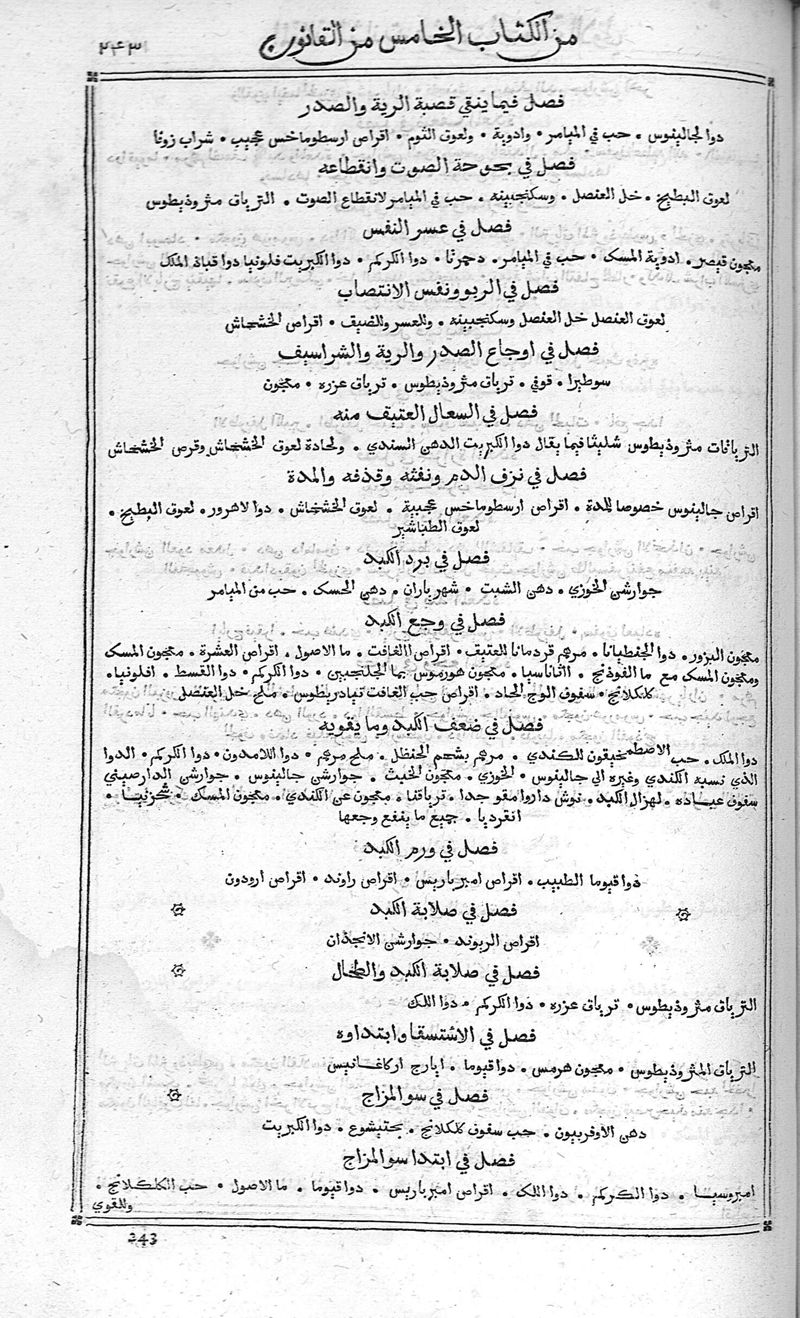 من الكتاب الخامس من القانون ٢٤٣
فصل فيما ينقي قصبة الرية والصدر
دوا لجالينوس • حب في الميامر • وادوية • ولعوق الثوم • اقراص ارسطوماخس عجيب • شراب زوفا
فصل في بحوحة الصوت وانقطاعه
لعوق البطيخ • خل العنصل • وسكنجبينه • حب في الميامر لانقطاع الصوت • الترياق مثروذيطوس
فصل في عسر النفس
معجون قيصر • ادوية المسك • حب في الميامر • دحمرثا • دوا الكركم • دوا الكبريت فلونيا دوا قباذ الملك
فصل في الربو ونفس الانتصاب
لعوق العنصل خل العنصل وسكنجبينه • وللعسر وللضيق • اقراص الخشخاش
فصل في اوجاع الصدر والرية والشراسيف
سوطيرا • قوفي • ترياق مثروذيطوس • ترياق عزره • معجون
فصل في السعال العتيق منه
الترياقات مثروذيطوس شليثا فيما يقال دوا الكبريت الدهن السندي • ولحادة لعوق الخشخاش وقرص الخشخاش
فصل في نزف الدم ونفثه وقذفه والمدة
اقراص جالينوس خصوصا للمدة • اقراص ارسطوماخس عجيبة • لعوق الخشخاش • دوا لاهرور • لعوق البطيخ •
لعوق الطباشير
فصل في برد الكبد
جوارشن الخوزي • دهن الشبت • شهرياران • دهن الحسك • حب من الميامر
فصل في وجع الكبد
معجون البزور • دوا الجنطيانا • مرهم قردمانا للعتيق • اقراص الغافت • ما الاصول • اقراص العشرة • معجون المسك
ومعجون المسك مع ما الفوذنج • اثاناسيا • معجون هورموس بما الجلنجبين • دوا الكركم • دوا القسط • افلونيا •
كلكلانج • سفوف الوج الحاد • اقراص حب الغافت تيادريطوس • ملح خل العنصل
فصل في ضعف الكبد وما يقويه
دوا الملك • حب الاصطمخيقون للكندي • مرهم بشحم الحنظل • ملح مرهم • دوا اللامدون • دوا الكركم • الدوا
الذي نسبه الكندي وغيره الي جالينوس • الخوزي • معجون الخبث • جوارشن جالينوس • جوارشن الدارصيني
سفوف عباده • لهزال الكبد • نوش داروا مقو جدا • ترياقنا • معجون عن الكندي • معجون المسك • شجزنيا •
انقرديا • جميع ما ينفع وجعها
فصل في ورم الكبد
دوا قيوما الطبيب • اقراص امير باريس • اقراص راوند • اقراص ارودون
فصل في صلابة الكبد
اقراص الربوند • جوارشن الانجذان
فصل في صلابة الكبد والطحال
الترياق مثروذيطوس • ترياق عزره • دوا الكركم • دوا اللك
فصل في الاستسقا وابتداوه
الترياق المثروذيطوس • معجون هرمس • دوا قيوما • ايارج اركاغانيس
فصل في سو المزاج
دهن الاوفربيون • حب سفوف كلكلانج • بختيشوع • دوا الكبريت
فصل في ابتدا سو المزاج
امبروسيا • دوا الكركم • دوا اللك • اقراص امير باريس • دوا قيوما • ما الاصول • حب الكلكلانج •
وللقوي
243